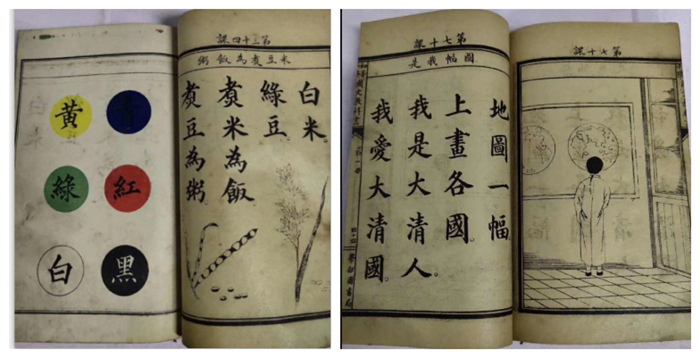 紅
黑
黃
綠
白
第三十四課
米豆煮為飯粥
白米。
綠豆。
煮米為飯
煮豆為粥
第七十課
圖幅我是
地圖一幅。
上畫各國。
我是大清人。
我愛大清國。
學部圖書局
第七十課